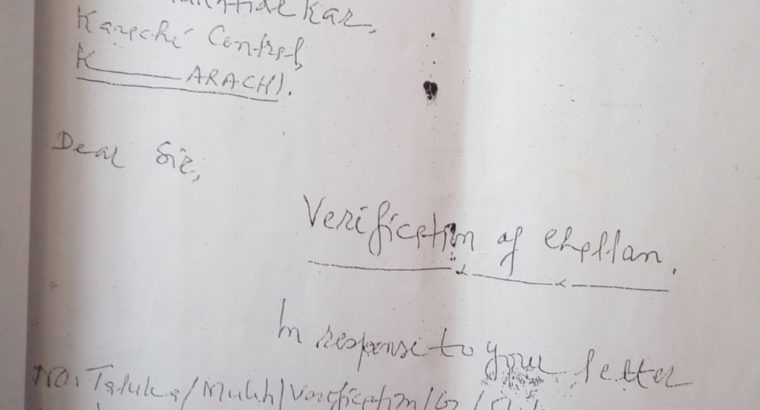 Karachi Central,
K———ARACHI.
Dear Sir,
Verification of Challan.
In response to your letter
No. Taluka/Mukh/Verification/